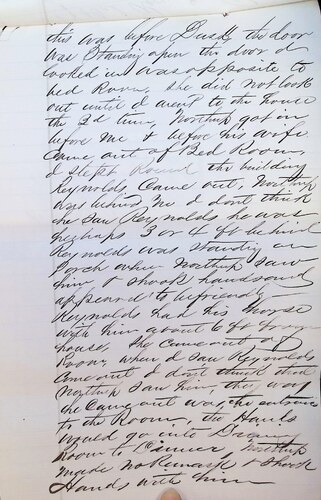 this was before Dusk the door
was Standing open the door I
looked in was opposite to
bed Room. She did not look
out until I went to the house
the 2d time, Northup got in
before me & before his wife
Came out of Bed Room,
I Stept Round the building
Reynolds Came out, Northup
was behind me I dont think
he Saw Reynolds he was
perhaps 3 or 4 ft behind
Reynolds was Standing on
Porch when Northup Saw
him & Shook hands and
appeared to be friendly
Reynolds had his horse
with him about 6 ft from
house, He came out of
Room, when I Saw Reynolds
Come out I dont think that
Northup Saw him, the way
he Came out was the entrance
to the Room, the Hands
would go into Dining
Room to Dinner, Northup
made no Remark & Shook
Hands with him